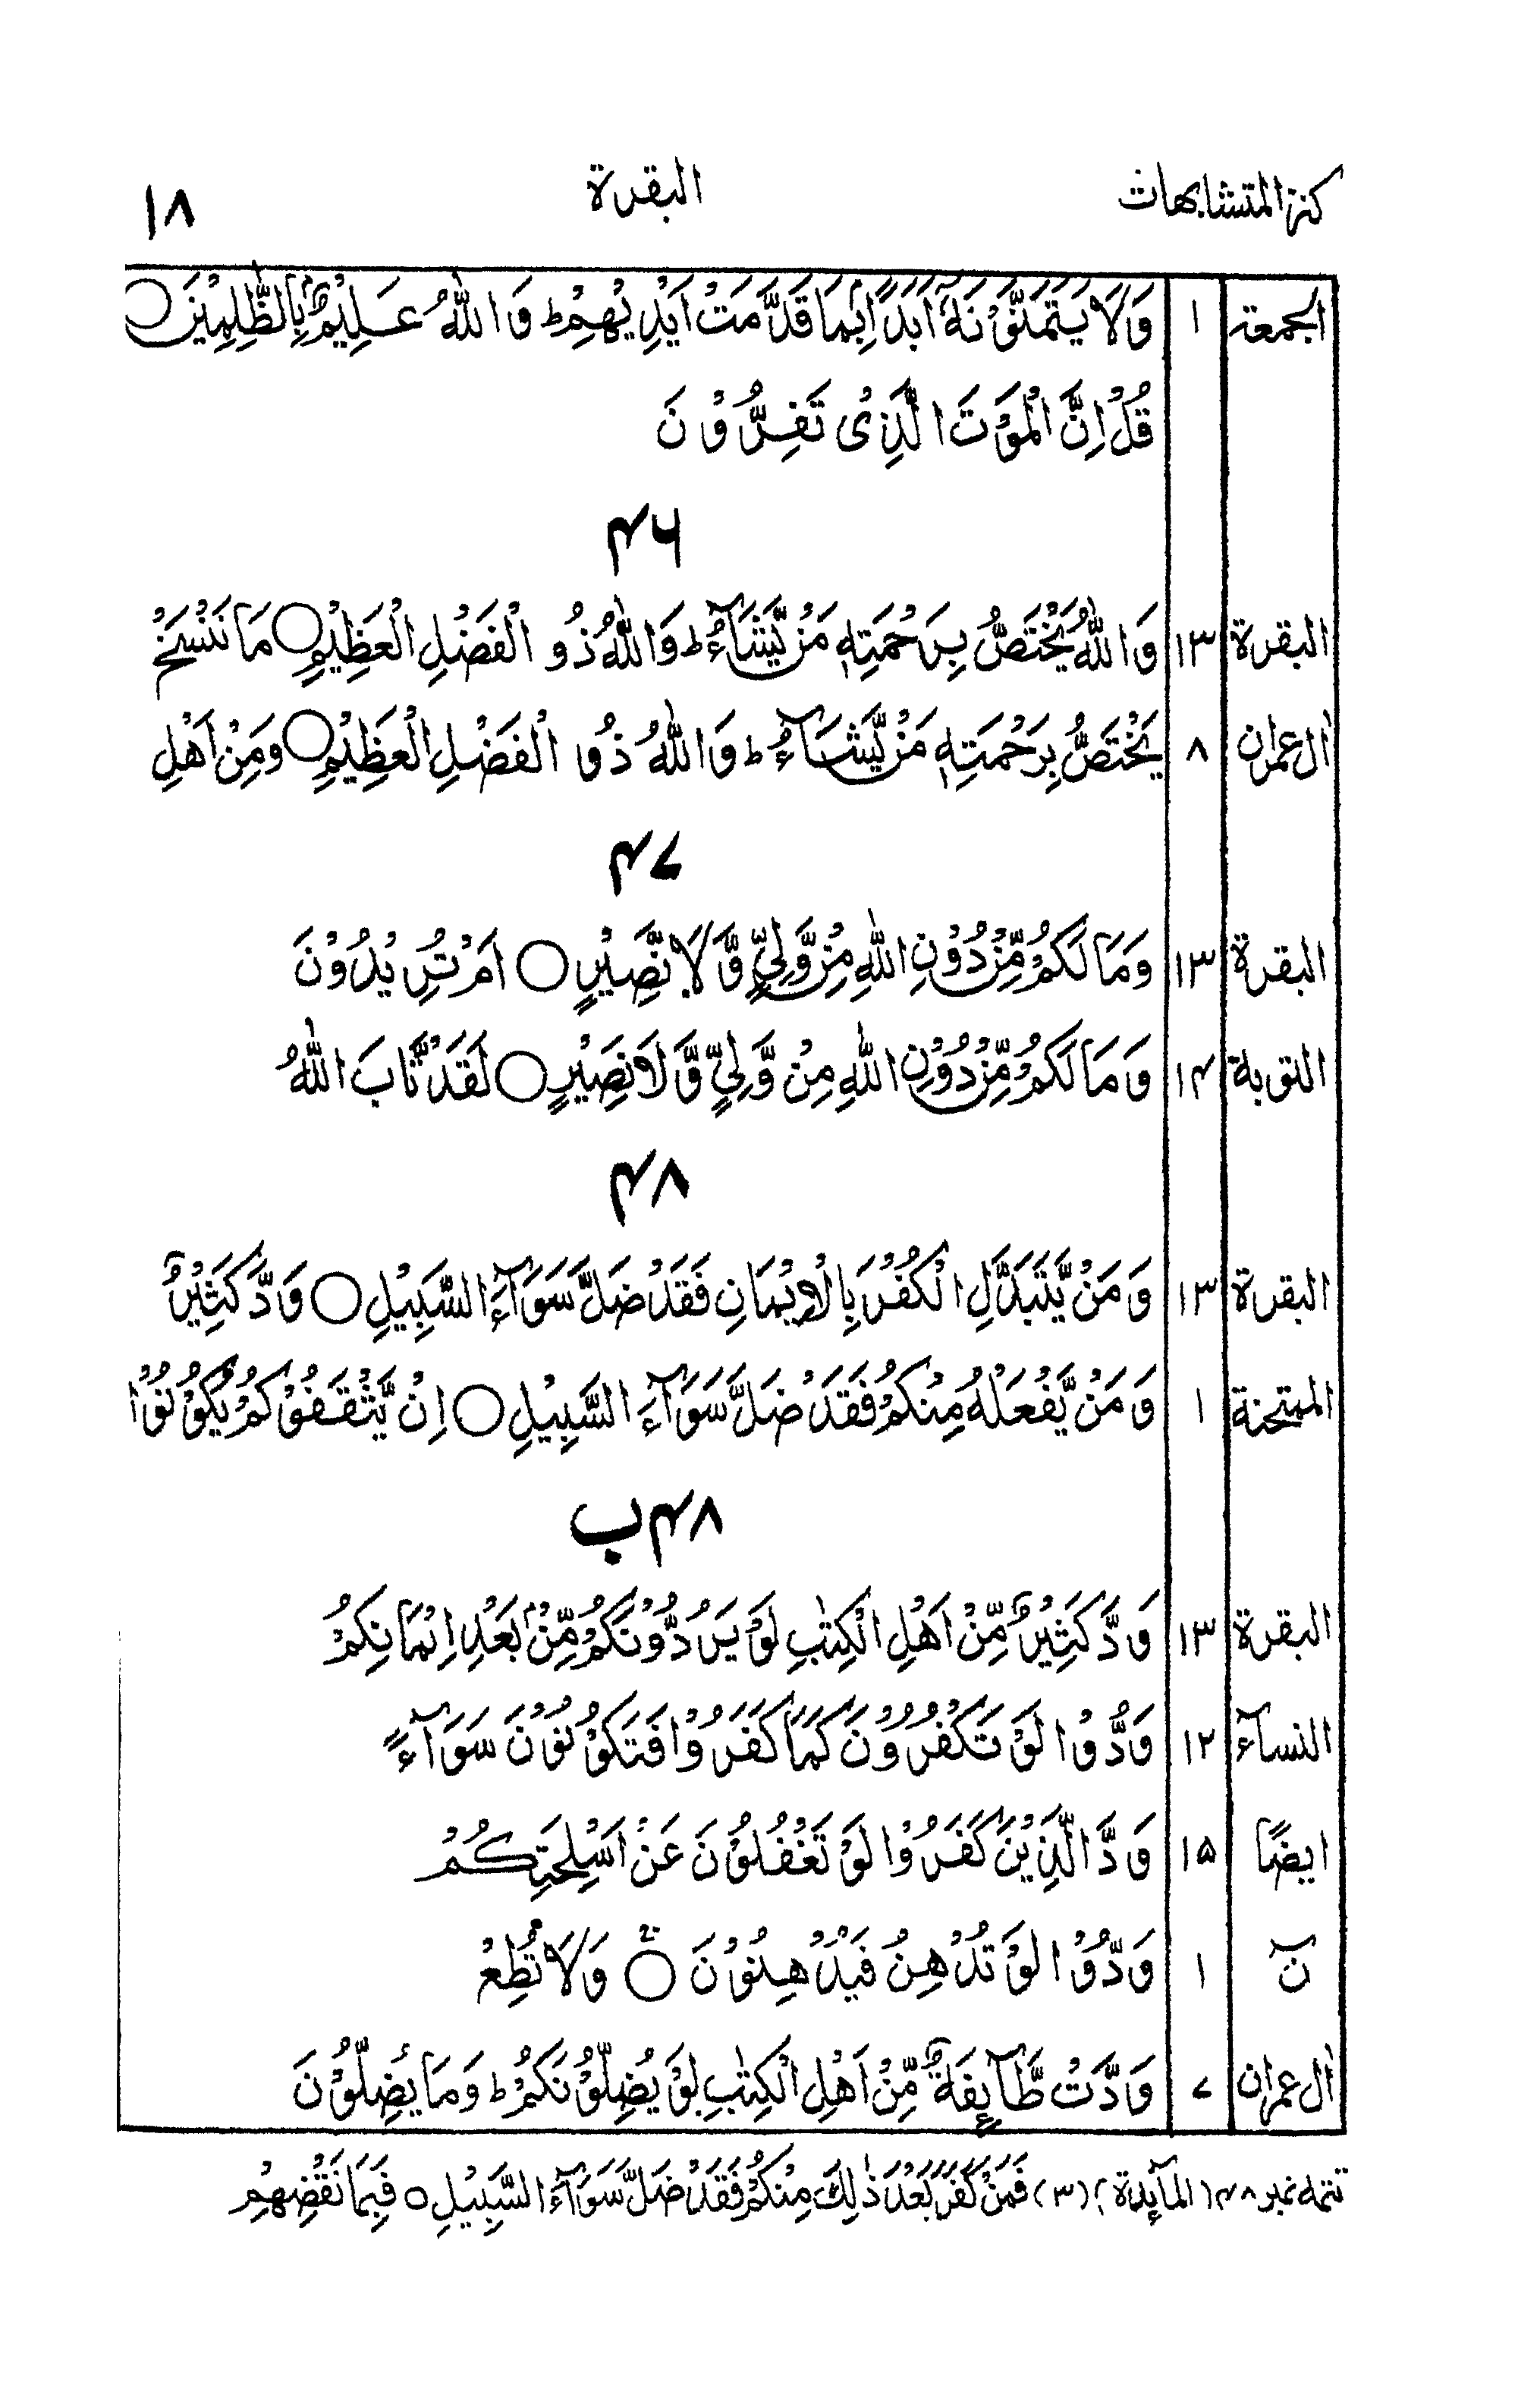 كنز المتشابهات البقرة ١٨
الجمعة ١ وَلَا يَتَمَنَّوْنَهٗٓ اَبَدًۢا بِمَا قَدَّمَتْ اَيْدِيْهِمْ ؕ وَاللّٰهُ عَلِيْمٌۢ بِالظّٰلِمِيْنَ ○
قُلْ اِنَّ الْمَوْتَ الَّذِىْ تَفِرُّوْنَ
۴۶
البقرة ۱۳ وَاللّٰهُ يَخْتَصُّ بِرَحْمَتِهٖ مَنْ يَّشَآءُ ؕ وَاللّٰهُ ذُو الْفَضْلِ الْعَظِيْمِ ○ مَا نَنْسَخْ
اٰل عمران ۸ يَخْتَصُّ بِرَحْمَتِهٖ مَنْ يَّشَآءُ ؕ وَاللّٰهُ ذُو الْفَضْلِ الْعَظِيْمِ ○ وَمِنْ اَهْلِ
۴۷
البقرة ۱۳ وَمَا لَكُمْ مِّنْ دُوْنِ اللّٰهِ مِنْ وَّلِيٍّ وَّلَا نَصِيْرٍ ○ اَمْ تُرِيْدُوْنَ
التوبة ۱۴ وَمَا لَكُمْ مِّنْ دُوْنِ اللّٰهِ مِنْ وَّلِيٍّ وَّلَا نَصِيْرٍ ○ لَقَدْ تَّابَ اللّٰهُ
۴۸
البقرة ۱۳ وَمَنْ يَّتَبَدَّلِ الْكُفْرَ بِالْاِيْمَانِ فَقَدْ ضَلَّ سَوَآءَ السَّبِيْلِ ○ وَدَّ كَثِيْرٌ
الممتحنة ۱ وَمَنْ يَّفْعَلْهُ مِنْكُمْ فَقَدْ ضَلَّ سَوَآءَ السَّبِيْلِ ○ اِنْ يَّثْقَفُوْكُمْ يَكُوْنُوْا
۴۸ ب
البقرة ۱۳ وَدَّ كَثِيْرٌ مِّنْ اَهْلِ الْكِتٰبِ لَوْ يَرُدُّوْنَكُمْ مِّنْۢ بَعْدِ اِيْمَانِكُمْ
النسآء ۱۲ وَدُّوْا لَوْ تَكْفُرُوْنَ كَمَا كَفَرُوْا فَتَكُوْنُوْنَ سَوَآءً
ايضًا ۱۵ وَدَّ الَّذِيْنَ كَفَرُوْا لَوْ تَغْفُلُوْنَ عَنْ اَسْلِحَتِكُمْ
نٓ ۱ وَدُّوْا لَوْ تُدْهِنُ فَيُدْهِنُوْنَ ○ وَلَا تُطِعْ
اٰل عمران ۷ وَدَّتْ طَّآئِفَةٌ مِّنْ اَهْلِ الْكِتٰبِ لَوْ يُضِلُّوْنَكُمْ ؕ وَمَا يُضِلُّوْنَ
تتمه نمبر ۴۸ (المآئدة) (۳) فَمَنْ كَفَرَ بَعْدَ ذٰلِكَ مِنْكُمْ فَقَدْ ضَلَّ سَوَآءَ السَّبِيْلِ ○ فَبِمَا نَقْضِهِمْ